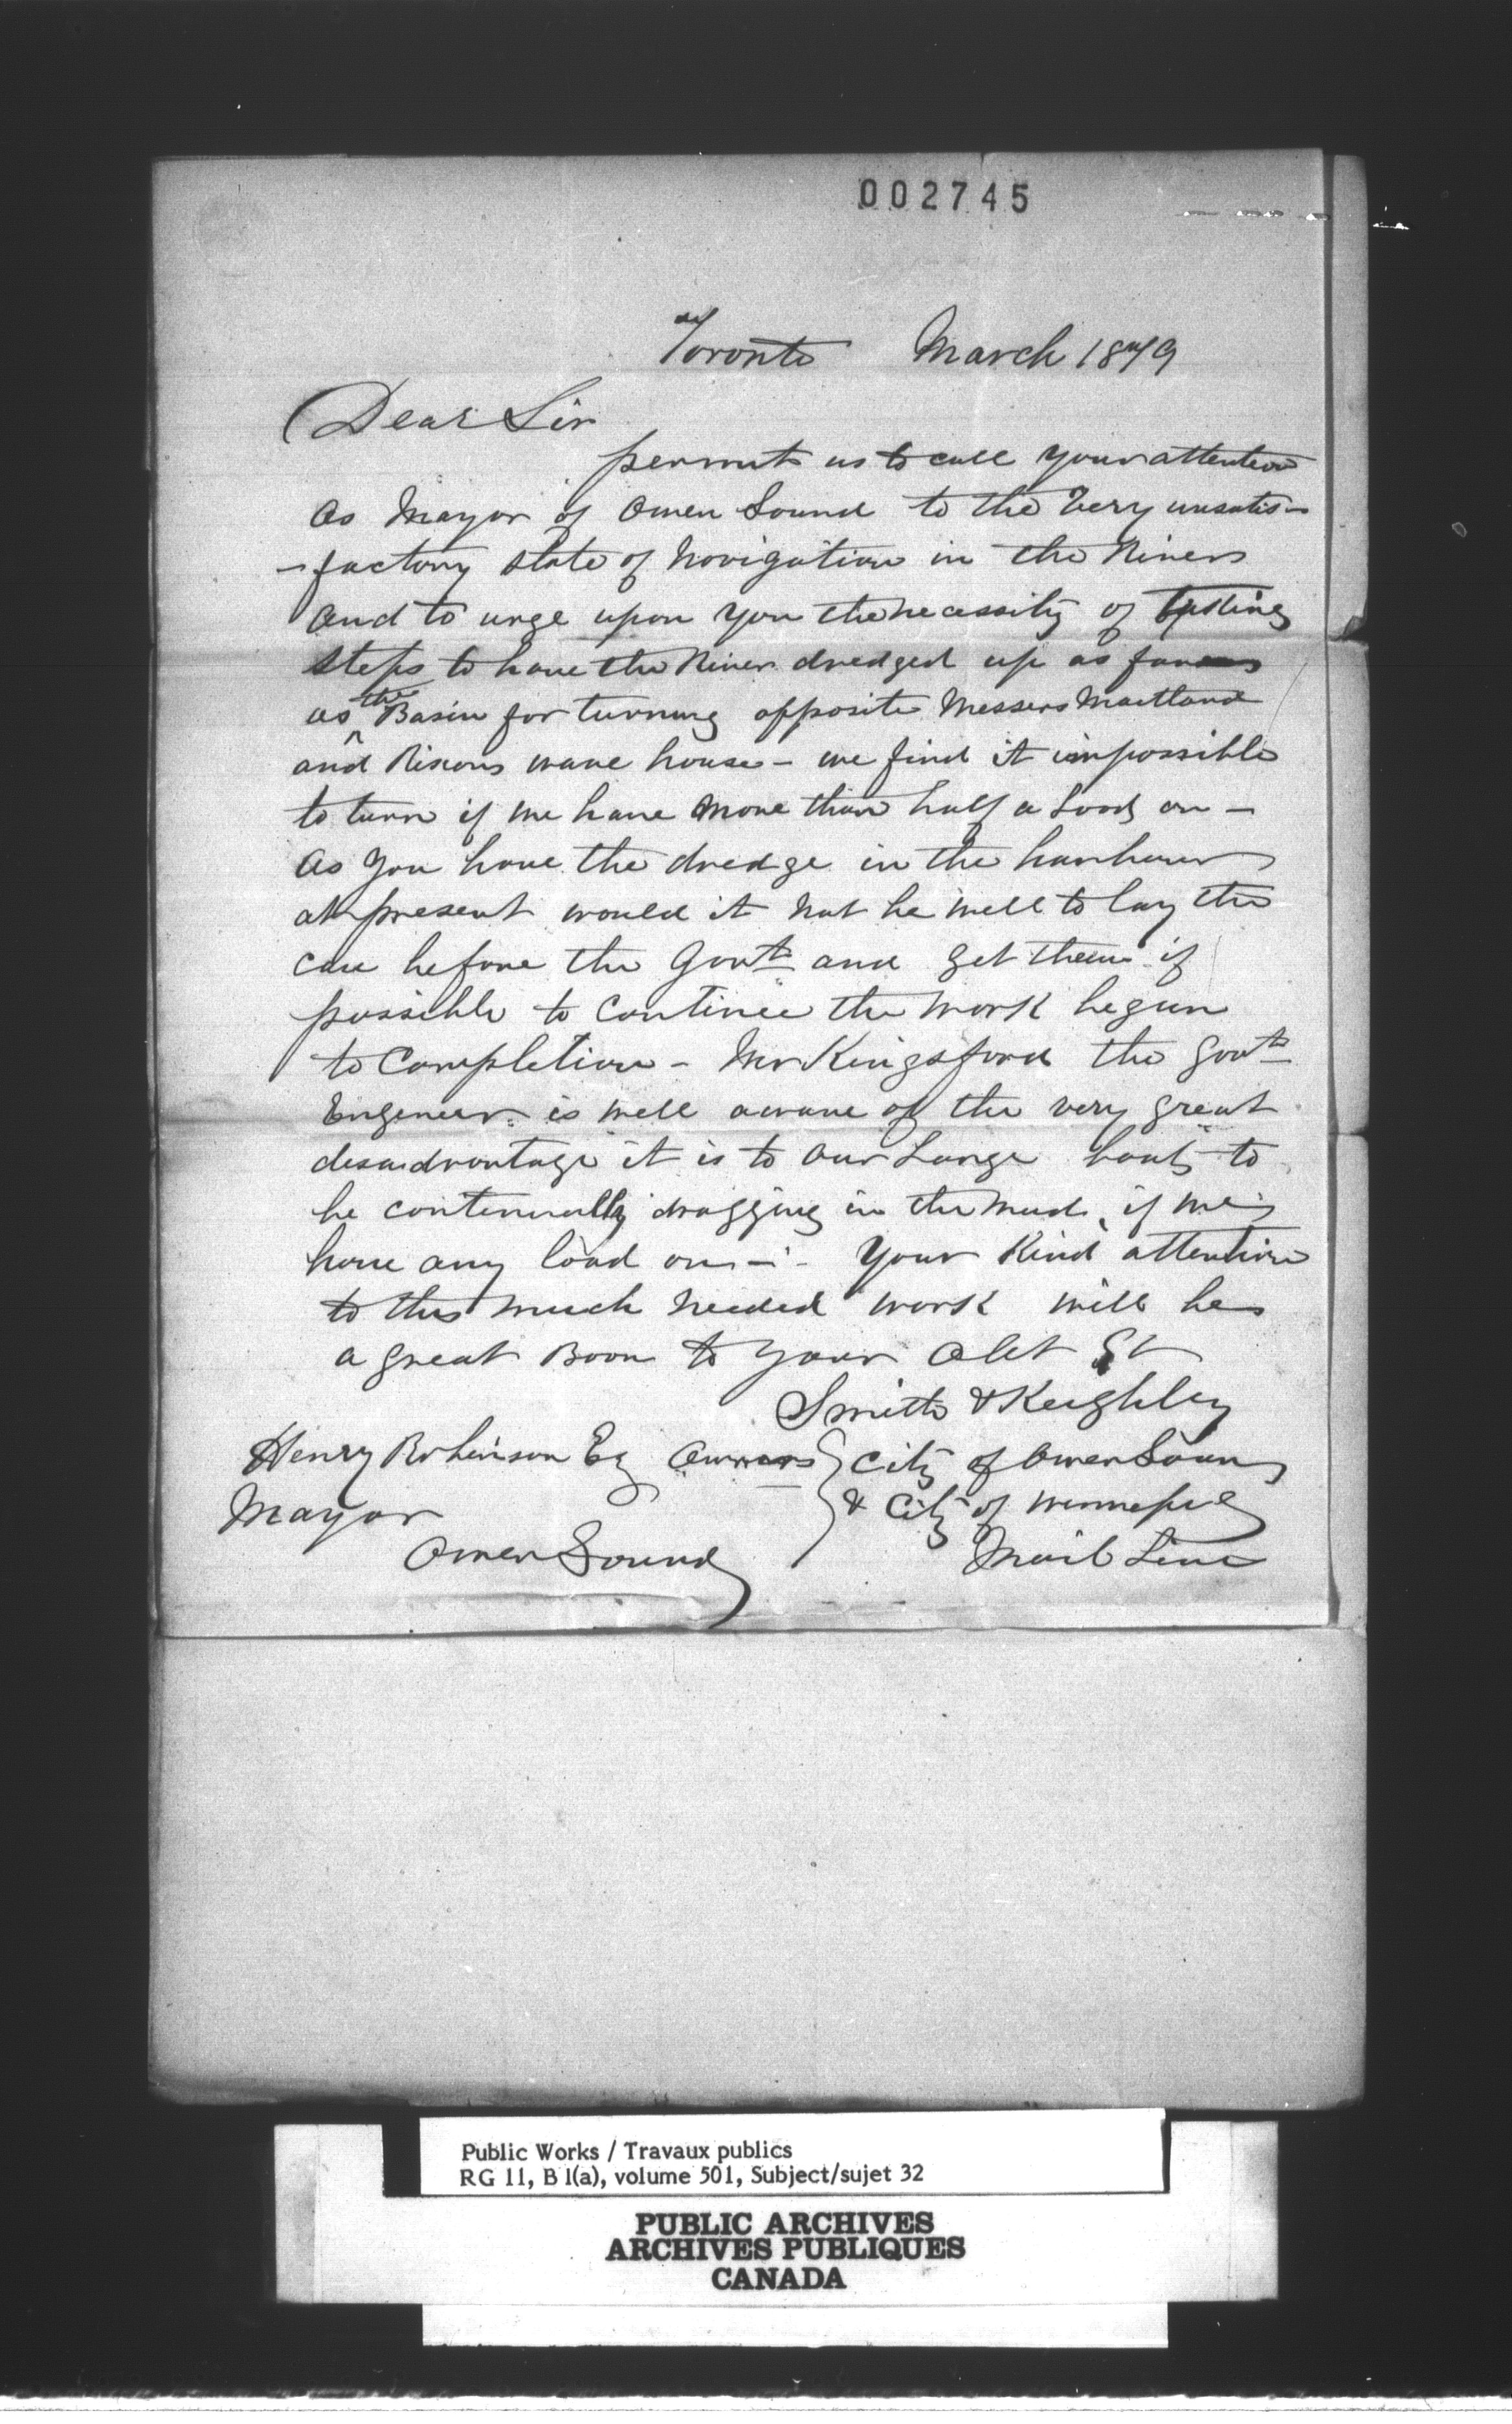 002745
Toronto March 1879
Dear Sir
permit us to call your attention
as Mayor of Owen Sound to the very unsatis-
-factory state of Navigation in the River
and to urge upon you the necessity of taking
steps to have the River dredged up as far
as the Basin for turning opposite Messers Maitland
and Rixons ware house - we find it impossible
to turn if we have more than half a load on -
As you have the dredge in the harbour
at present would it not be well to lay the
case before the Govt and get them if
possible to continue the work begun
to Completion - Mr Kingsford the Govt
Engineer is well aware of the very great
disadvantage it is to our Large boats to
be continually dragging in the mud, if we
have any load on - Your Kind attention
to this much needed work will be
a great Boon to your Obt St
Smith & Keighley
Henry Robinson Esq Owners City of Owen Sound
Mayor & City of Winnipeg
Owen Sound Mail Line
Public Works / Travaux publics
RG 11, B 1(a), volume 501, Subject/sujet 32
PUBLIC ARCHIVES
ARCHIVES PUBLIQUES
CANADA